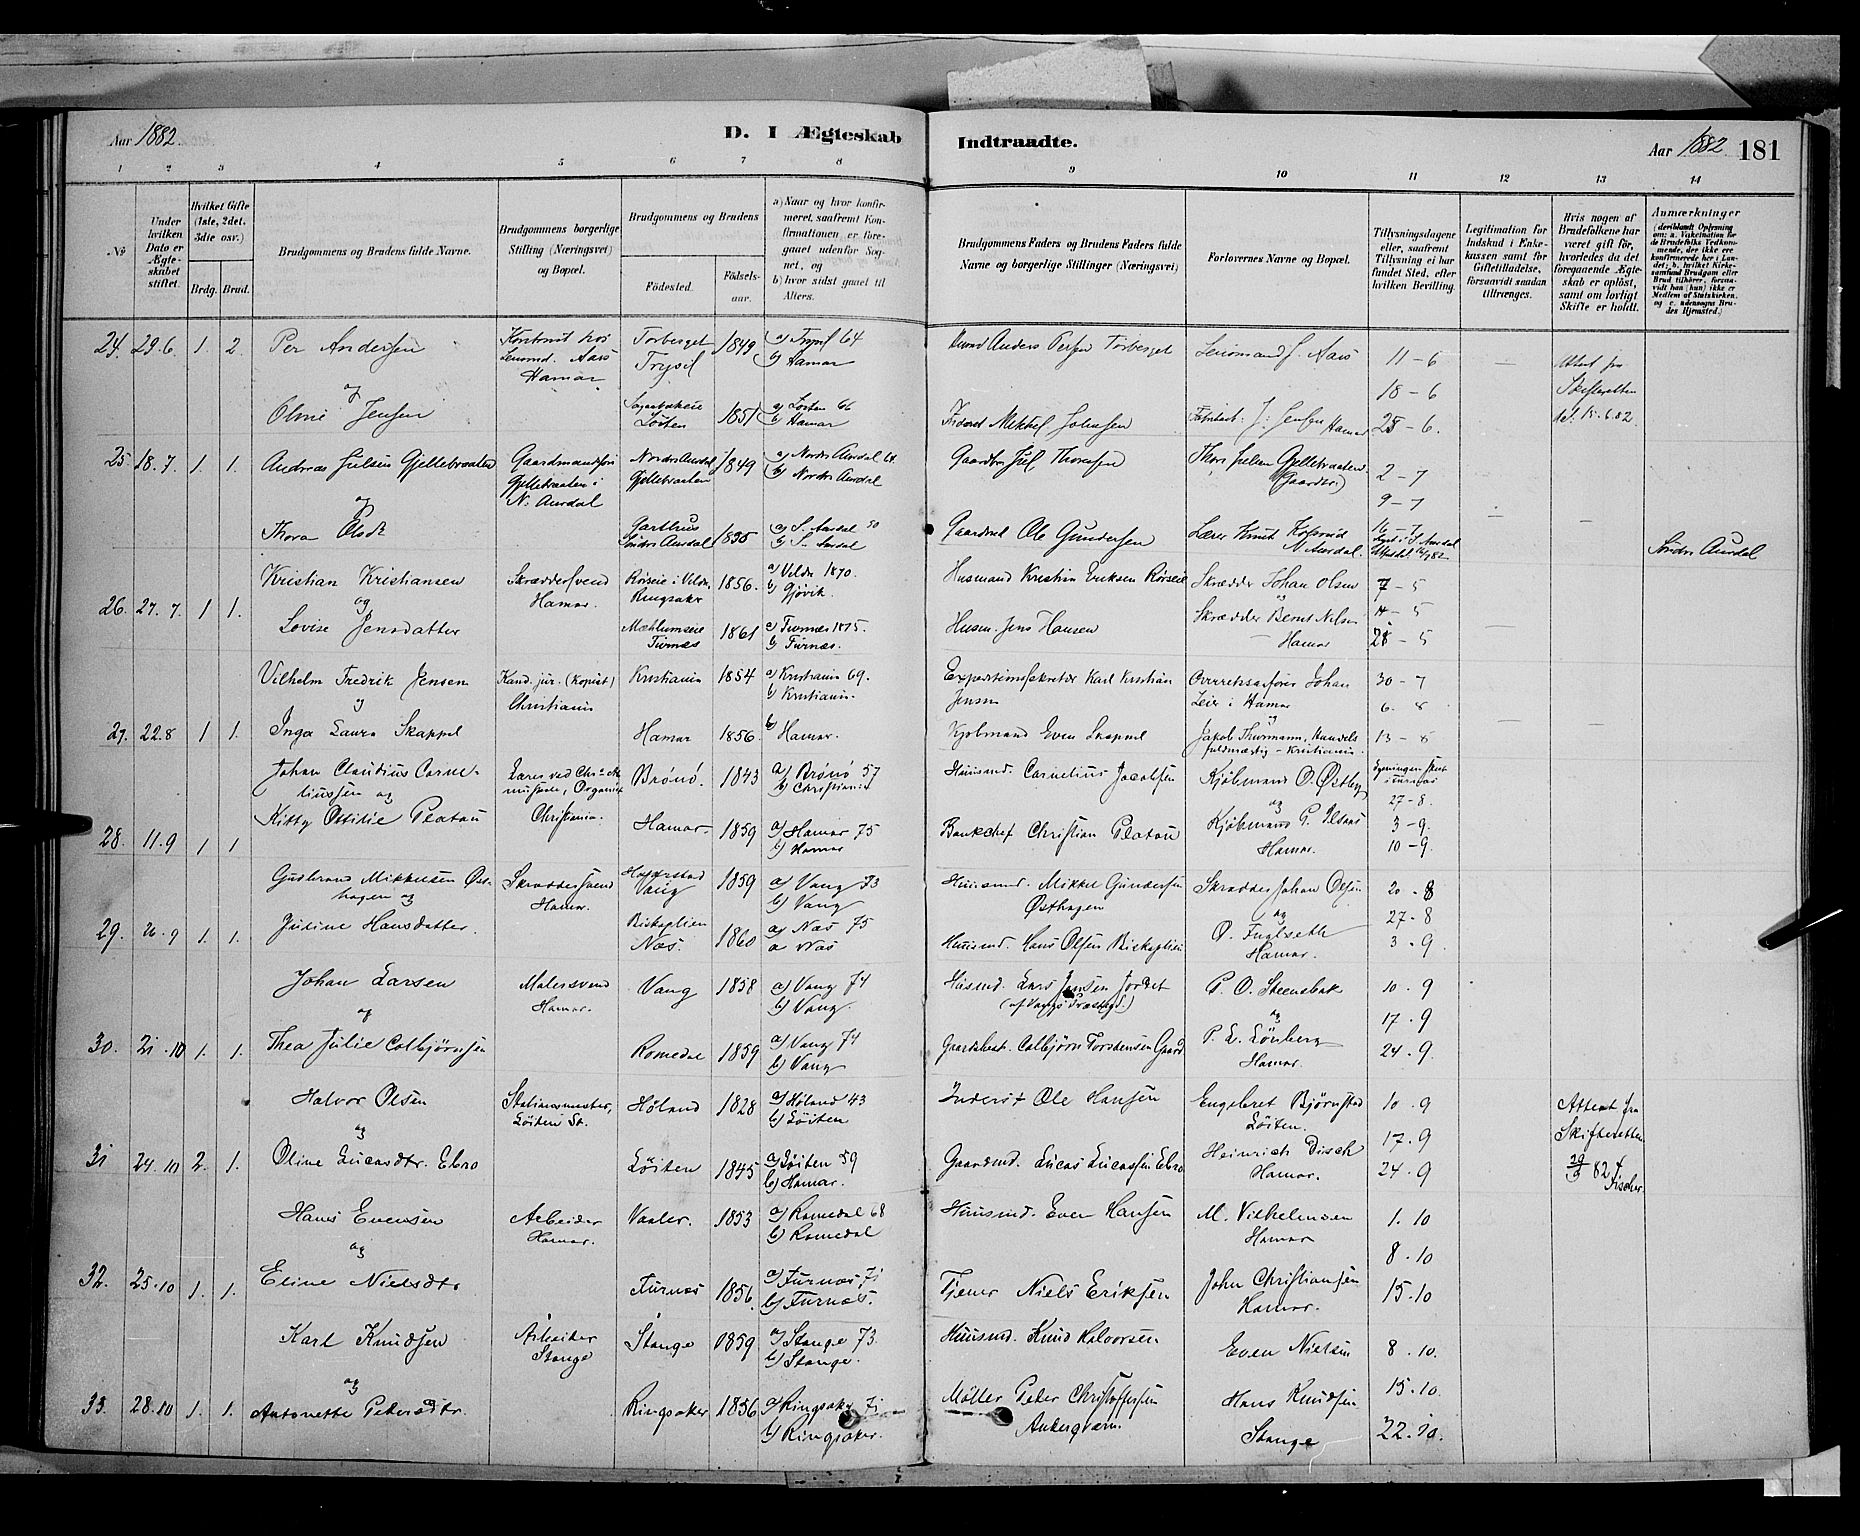 Aar 1882.
D. I Ægteskab Indtraadte.
Aar 1882. 181
1 2 3 4 5 6 7 8 9 10 11 12 13 14
No
Under hvilken Dato er Ægteskabet stiftet.
Hvilket Gifte (1ste, 2det, 3die osv.)
Brdg. Brud.
Brudgommens og Brudens fulde Navne.
Brudgommens borgerlige Stilling (Næringsvei) og Bopæl.
Brudgommens og Brudens
Födested. Födselsaar.
a) Naar og hvor konfirmeret, saafremt Konfirmationen er foregaaet udenfor Sognet, og
b) hvor sidst gaaet til Alters.
Brudgommens Faders og Brudens Faders fulde Navne og borgerlige Stillinger (Næringsvei)
Forlovernes Navne og Bopæl.
Tillysningsdagene eller, saafremt Tillysning ei har fundet Sted, efter hvilken Bevilling.
Legitimation for Indskud i Enkekassen samt for Giftetilladelse, forsaavidt saadan tiltrænges.
Hvis nogen af Brudefolkene har været gift för, hvorledes da det foregaaende Ægteskab er oplöst, samt om lovligt Skifte er holdt.
Anmærkninger
24. 29.6 1. 2. Per Andersen
Hamar
Torberget Trysil 1849 a) Trysil 64 b) Hamar
Anders Torberget
Lensmand J. Aars
11-6
18-6
25-6.
og
Oline Jensen
Löiten 1851 a) Löiten 66 b) Hamar
Mikkel Johnsen
J. Jensen Hamar
Attest fra Skifteretten
15.6.82
25. 18.7. 1. 1. Andreas Juelsen Gjellebraaten
Gjellebraaten i N. Aurdal
Nordre Aurdal Gjellebraaten 1849 a) Nordre Aurdal b) Nordre Aurdal
Juel Thoresen
Thore Juelsen Gjellebraaten (Gaardbr.)
2-7
9-7
og
Thora Olsdt
Garthus Söndre Aurdal 1835 a) S. Aurdal 50 b) S. Aurdal
Ole Gundersen
Lærer Knut
N. Aurdal
Söndre Aurdal
26. 27.7. 1 1. Kristian Kristiansen
Skræddersvend Hamar.
Rörseie i Veldre Ringsaker 1856. a) Veldre 1870. b) Gjövik.
Husmand Kristian Eriksen Rörseie
Skrædder Johan Olsen
7-5
og
Lovise Jensdatter
Mæhlumseie Furnæs 1861 a) Furnæs 1875. b) Furnæs.
Husm. Jens Hansen
Skrædder Bernt Nilsen
Hamar
28-5
27. 22.8 1 1. Vilhelm Fredrik Jensen
Kand. jur. (Kopist) Christiania
Kristiania 1854 a) Kristiania 69. b) Kristiania.
Expeditionssekretær Karl Kristian Jensen
Overretssagförer Johan Leier i Hamar
30-7
6-8
og
Inga Laura Skappel
Hamar 1856. b) Hamar.
Kjöbmand Even Skappel
Jakob Thurmann, Handelsfuldmægtig - Kristiania.
13-8
28. 11.9 1 1 Johan Claudius Corneliussen og
Organist Christiania.
Brönö. 1843 a) Brönö 57 b) Christiania
Huusmd. Cornelius Jacobsen
Kjöbmand O. Östby
27-8.
Kitty Ottilie Platou
Hamar. 1859 a) Hamar 75 b) Hamar
Bankchef Christian Platou
og
Kjöbmand P.
Hamar.
3-9.
10-9.
29. 26.9 1. 1. Gudbrand Mikkelsen Östhagen og
Skræddersvend Hamar.
Vang 1859 a) Vang 73 b) Vang
Huusmd. Mikkel Gundersen Östhagen
Skrædder Johan Olsen
20-8
27-8
Juline Hansdatter.
Biskoplien Næs. 1860 a) Næs 75 a Næs
Huusmd. Hans Olsen Biskoplien
og
O. Fuglseth
Hamar.
3-9.
30. 21.10 1. 1. Johan Larsen
Malersvend Hamar.
Vang 1858 a) Vang 74 b) Vang.
Husmd. Lars Jensen Jordet
(af Vangs Præstegd.)
P. O. Steensbak
10.9
og
Thea Julie Colbjörnsen
Romedal 1859 a) Vang 74 b) Vang
Colbjörn Torstensen Gaard
og
P. L. Lönberg
Hamar.
17.9
24.9.
31 24.10 2. 1. Halvor Olsen
Stationsmester, Löiten St.
Höland 1828 a) Höland 43 b) Löiten
Inderst Ole Hansen
Engebret Björnstad Löiten.
10.9
17.9
og
Oline Lucasdtr. Ebro
Löiten 1845 a) Löiten 59 b) Hamar.
Gaardmd. Lucas Lucassen Ebro
Heinrich Disch Hamar.
24.9
Attest fra Skifteretten
82
Fischer.
32. 25.10 1. 1. Hans Evensen
Arbeider Hamar.
Vaaler. 1853 a) Romedal 68 b) Romedal
Huusmd. Even Hansen
M. Vilhelmsen Hamar
1.10
8.10
og
Eline Nielsdtr
Furnæs 1856. a) Furnæs 71 b) Furnæs.
Tjener Niels Eriksen
John Christiansen Hamar.
15.10
33. 28.10 1. 1. Karl Knudsen
Arbeider Stange
Stange 1859 a) Stange 73. b) Stange.
Huusmd. Knud Halvorsen
Even Nielsen
8.10.
og
Antonette Petersdtr.
Ringsaker 1856 a) Ringsaker 71 b) Ringsaker.
Möller Peter Christophersen Ankerqværn.
Hans Knudsen
Stange
15.10.
22.10.